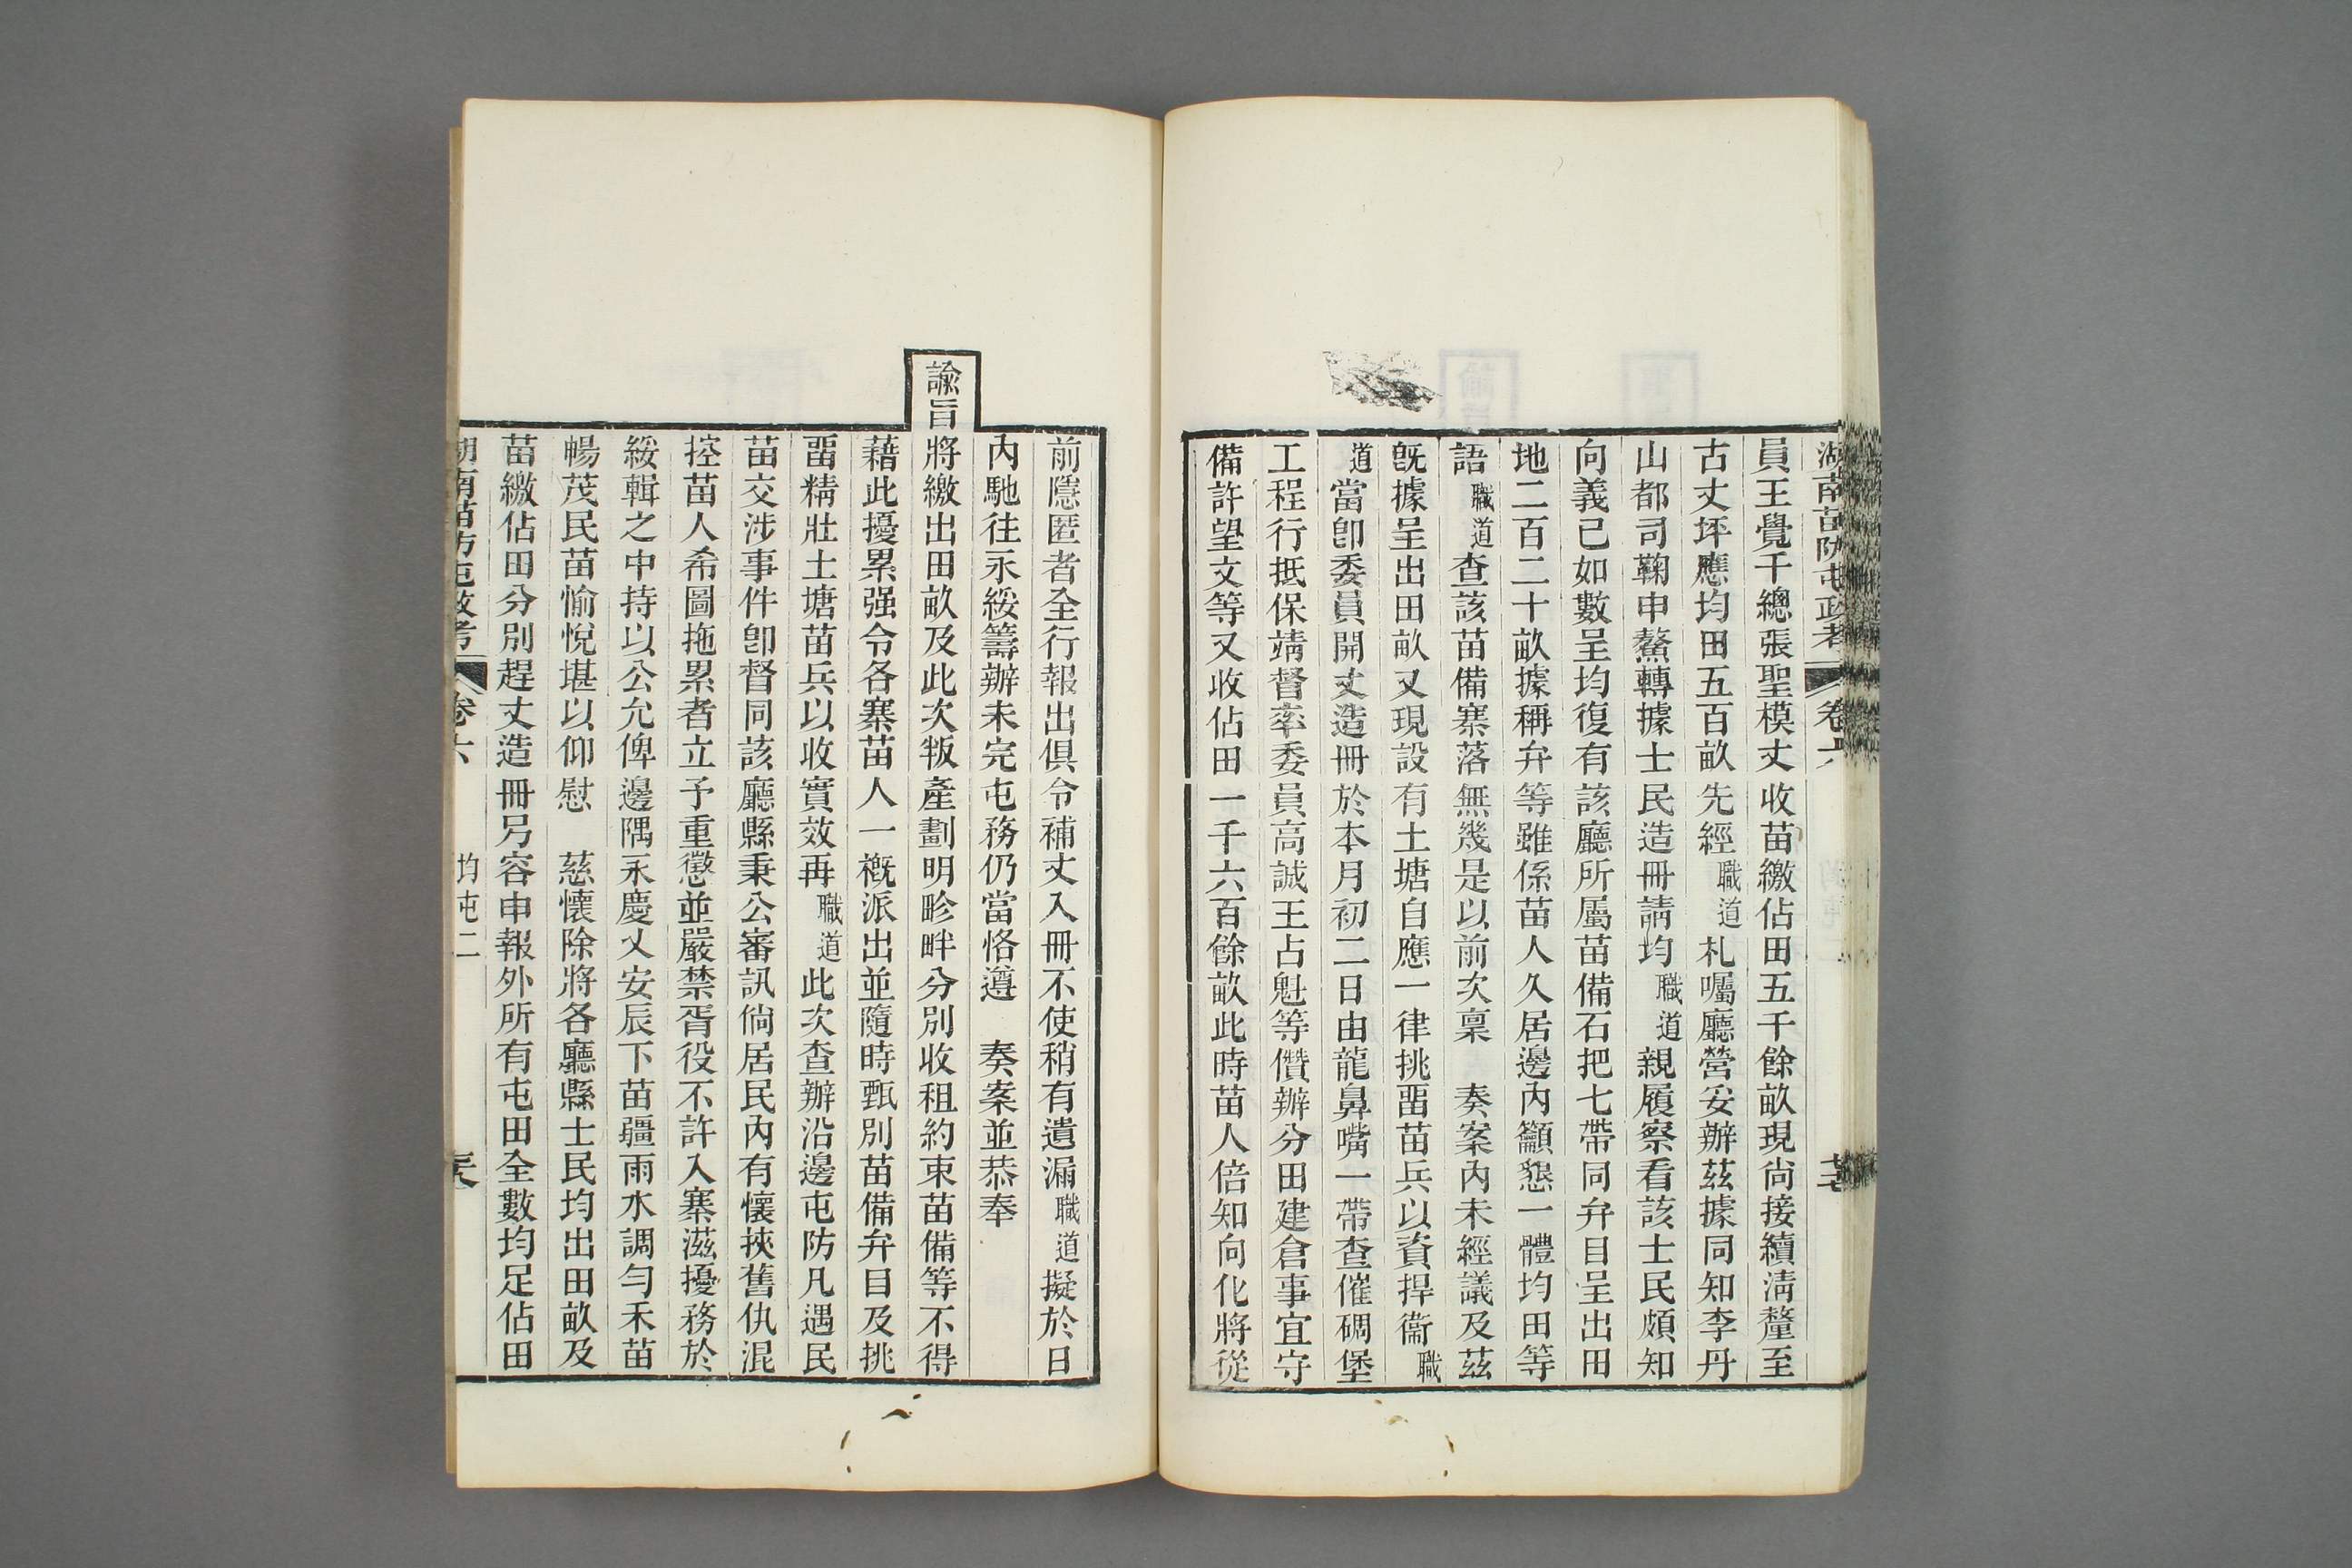 湖南苗防屯政考 卷六
員王覺千總張聖模丈收苗繳佔田五千餘畝現尙接續淸釐至
古丈坪應均田五百畝先經職道札囑廳營妥辦茲據同知李丹
山都司鞠申鰲轉據士民造冊請均職道親履察看該士民頗知
向義已如數呈均復有該廳所屬苗備石把七帶同弁目呈出田
地二百二十畝據稱弁等雖係苗人久居邊內籲懇一體均田等
語職道查該苗備寨落無幾是以前次稟 奏案內未經議及茲
旣據呈出田畝又現設有土塘自應一律挑畱苗兵以資捍衞職
道當卽委員開丈造冊於本月初二日由龍鼻嘴一帶查催碉堡
工程行抵保靖督率委員高誠王占魁等儹辦分田建倉事宜守
備許望文等又收佔田一千六百餘畝此時苗人倍知向化將從
前隱匿者全行報出俱令補丈入冊不使稍有遺漏職道擬於日
內馳往永綏籌辦未完屯務仍當恪遵 奏案並恭奉
諭旨將繳出田畝及此次叛產劃明畛畔分別收租約束苗備等不得
藉此擾累强令各寨苗人一槪派出並隨時甄別苗備弁目及挑
畱精壯土塘苗兵以收實效再職道此次查辦沿邊屯防凡遇民
苗交涉事件卽督同該廳縣秉公審訊倘居民內有懷挾舊仇混
控苗人希圖拖累者立予重懲並嚴禁胥役不許入寨滋擾務於
綏輯之中持以公允俾邊隅永慶乂安辰下苗疆雨水調勻禾苗
暢茂民苗愉悅堪以仰慰 慈懷除將各廳縣士民均出田畝及
苗繳佔田分別趕丈造冊另容申報外所有屯田全數均足佔田
湖南苗防屯政考 卷六 均屯二